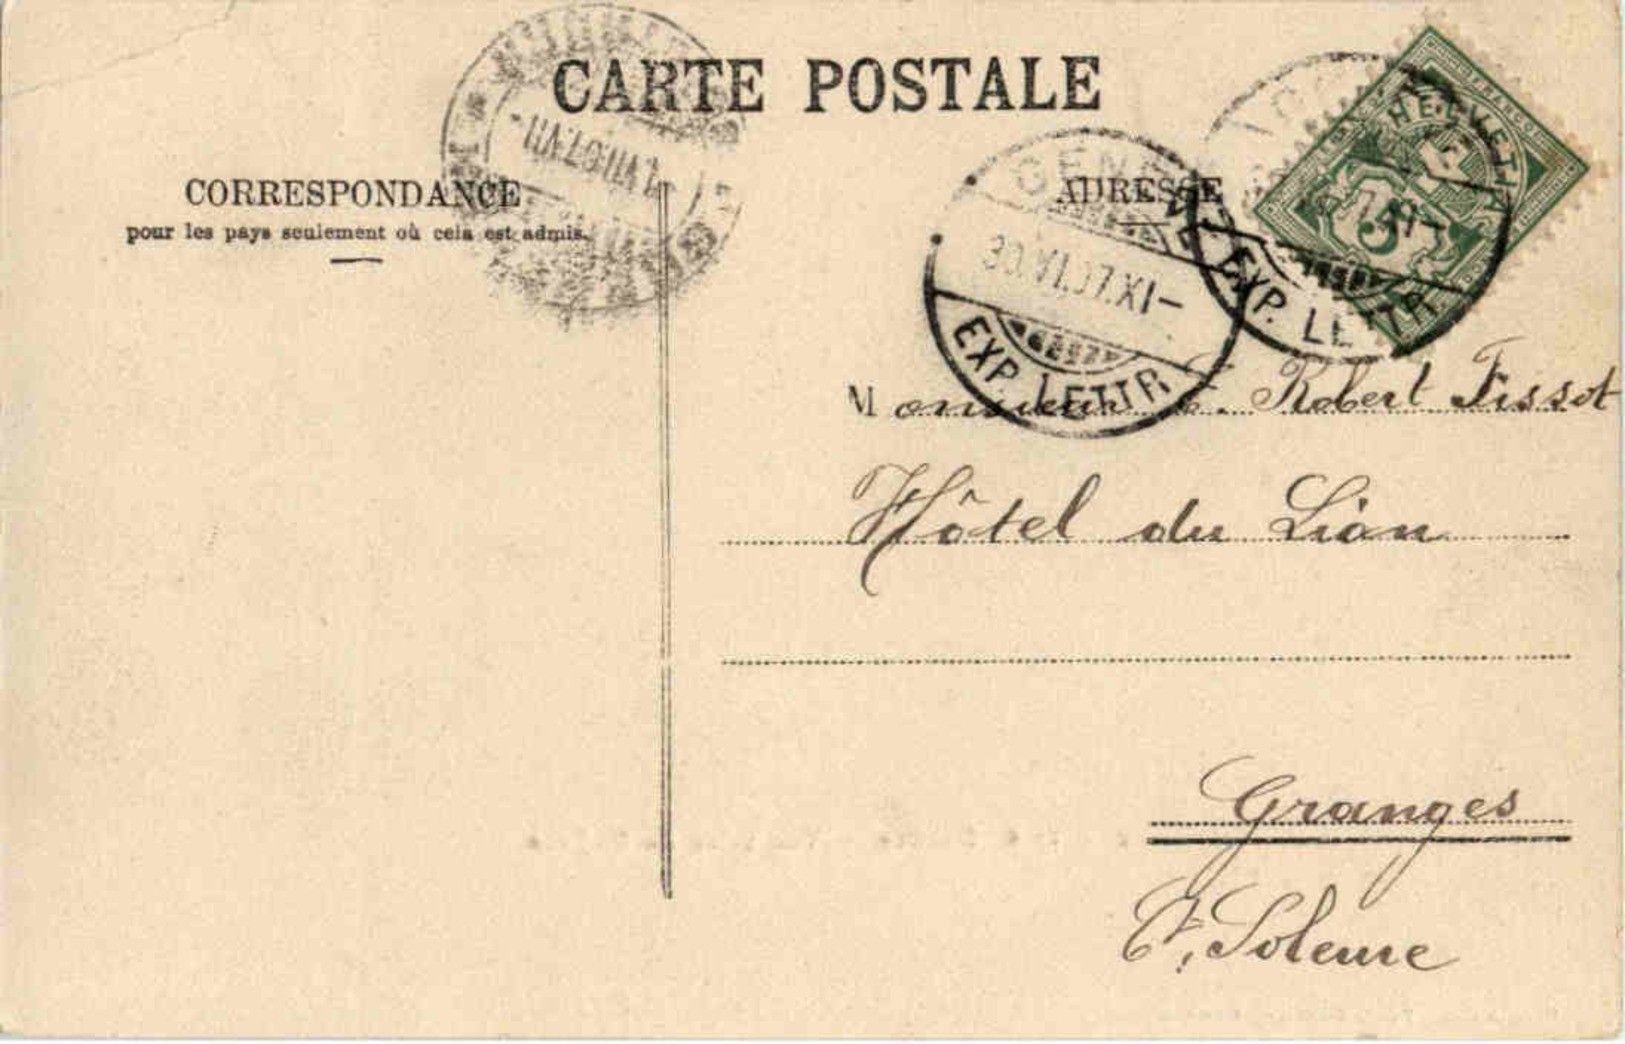 CARTE POSTALE
CORRESPONDANCE
pour les pays seulement où cela est admis.
ADRESSE
GENÈVE
30.VI.07.XI-
EXP. LETTR
EXP. LETTR
1.VII.07.VII-
FRANCO
HELVETIA
5
Monsieur Robert Tissot
Hôtel du Lion
Granges
Ct. Soleure